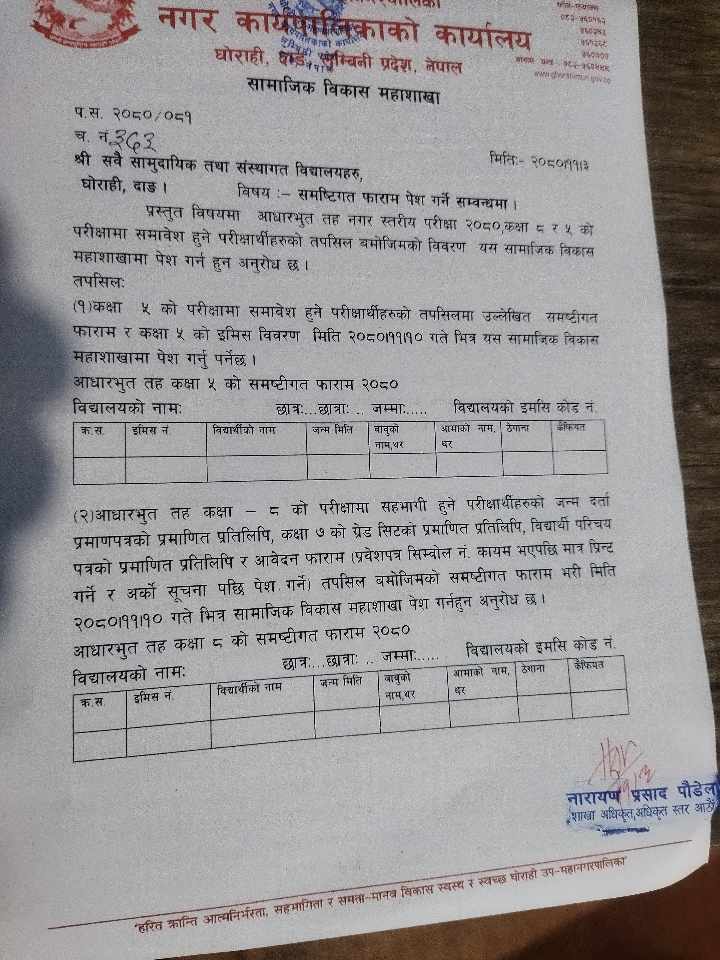 नगर कार्यपालिकाको कार्यालय
घोराही, दाङ, लुम्बिनी प्रदेश, नेपाल
सामाजिक विकास महाशाखा
प.स. २०८०/०८१
च. नं ३६३
मितिः- २०८०।११।३
श्री सवै सामुदायिक तथा संस्थागत विद्यालयहरु,
घोराही, दाङ ।
विषय :– समष्टिगत फाराम पेश गर्ने सम्वन्धमा ।
प्रस्तुत विषयमा आधारभुत तह नगर स्तरीय परीक्षा २०८०,कक्षा ८ र ५ को
परीक्षामा समावेश हुने परीक्षार्थीहरुको तपसिल बमोजिमको विवरण यस सामाजिक विकास
महाशाखामा पेश गर्न हुन अनुरोध छ ।
तपसिलः
(१)कक्षा ५ को परीक्षामा समावेश हुने परीक्षार्थीहरुको तपसिलमा उल्लेखित समष्टीगत
फाराम र कक्षा ५ को इमिस विवरण मिति २०८०।११।१० गते भित्र यस सामाजिक विकास
महाशाखामा पेश गर्नु पर्नेछ ।
आधारभुत तह कक्षा ५ को समष्टीगत फाराम २०८०
विद्यालयको नामः छात्रः...छात्राः .. जम्माः..... विद्यालयको इमसि कोड नं.
क्र.स. इमिस नं. विद्यार्थीको नाम जन्म मिति बाबुको नाम,थर आमाको नाम, थर ठेगाना कैफियत
(२)आधारभुत तह कक्षा – ८ को परीक्षामा सहभागी हुने परीक्षार्थीहरुको जन्म दर्ता
प्रमाणपत्रको प्रमाणित प्रतिलिपि, कक्षा ७ को ग्रेड सिटको प्रमाणित प्रतिलिपि, विद्यार्थी परिचय
पत्रको प्रमाणित प्रतिलिपि र आवेदन फाराम (प्रवेशपत्र सिम्वोल नं. कायम भएपछि मात्र प्रिन्ट
गर्ने र अर्को सूचना पछि पेश गर्ने) तपसिल बमोजिमको समष्टीगत फाराम भरी मिति
२०८०।११।१० गते भित्र सामाजिक विकास महाशाखा पेश गर्नहुन अनुरोध छ ।
आधारभुत तह कक्षा ८ को समष्टीगत फाराम २०८०
विद्यालयको नामः छात्रः...छात्राः .. जम्माः..... विद्यालयको इमसि कोड नं.
क्र.स. इमिस नं. विद्यार्थीको नाम जन्म मिति बाबुको नाम,थर आमाको नाम, थर ठेगाना कैफियत
नारायण प्रसाद पौडेल
शाखा अधिकृत,अधिकृत स्तर आठौं
"हरित क्रान्ति आत्मनिर्भरता, सहभागिता र समता–मानव विकास स्वस्थ र स्वच्छ घोराही उप–महानगरपालिका"